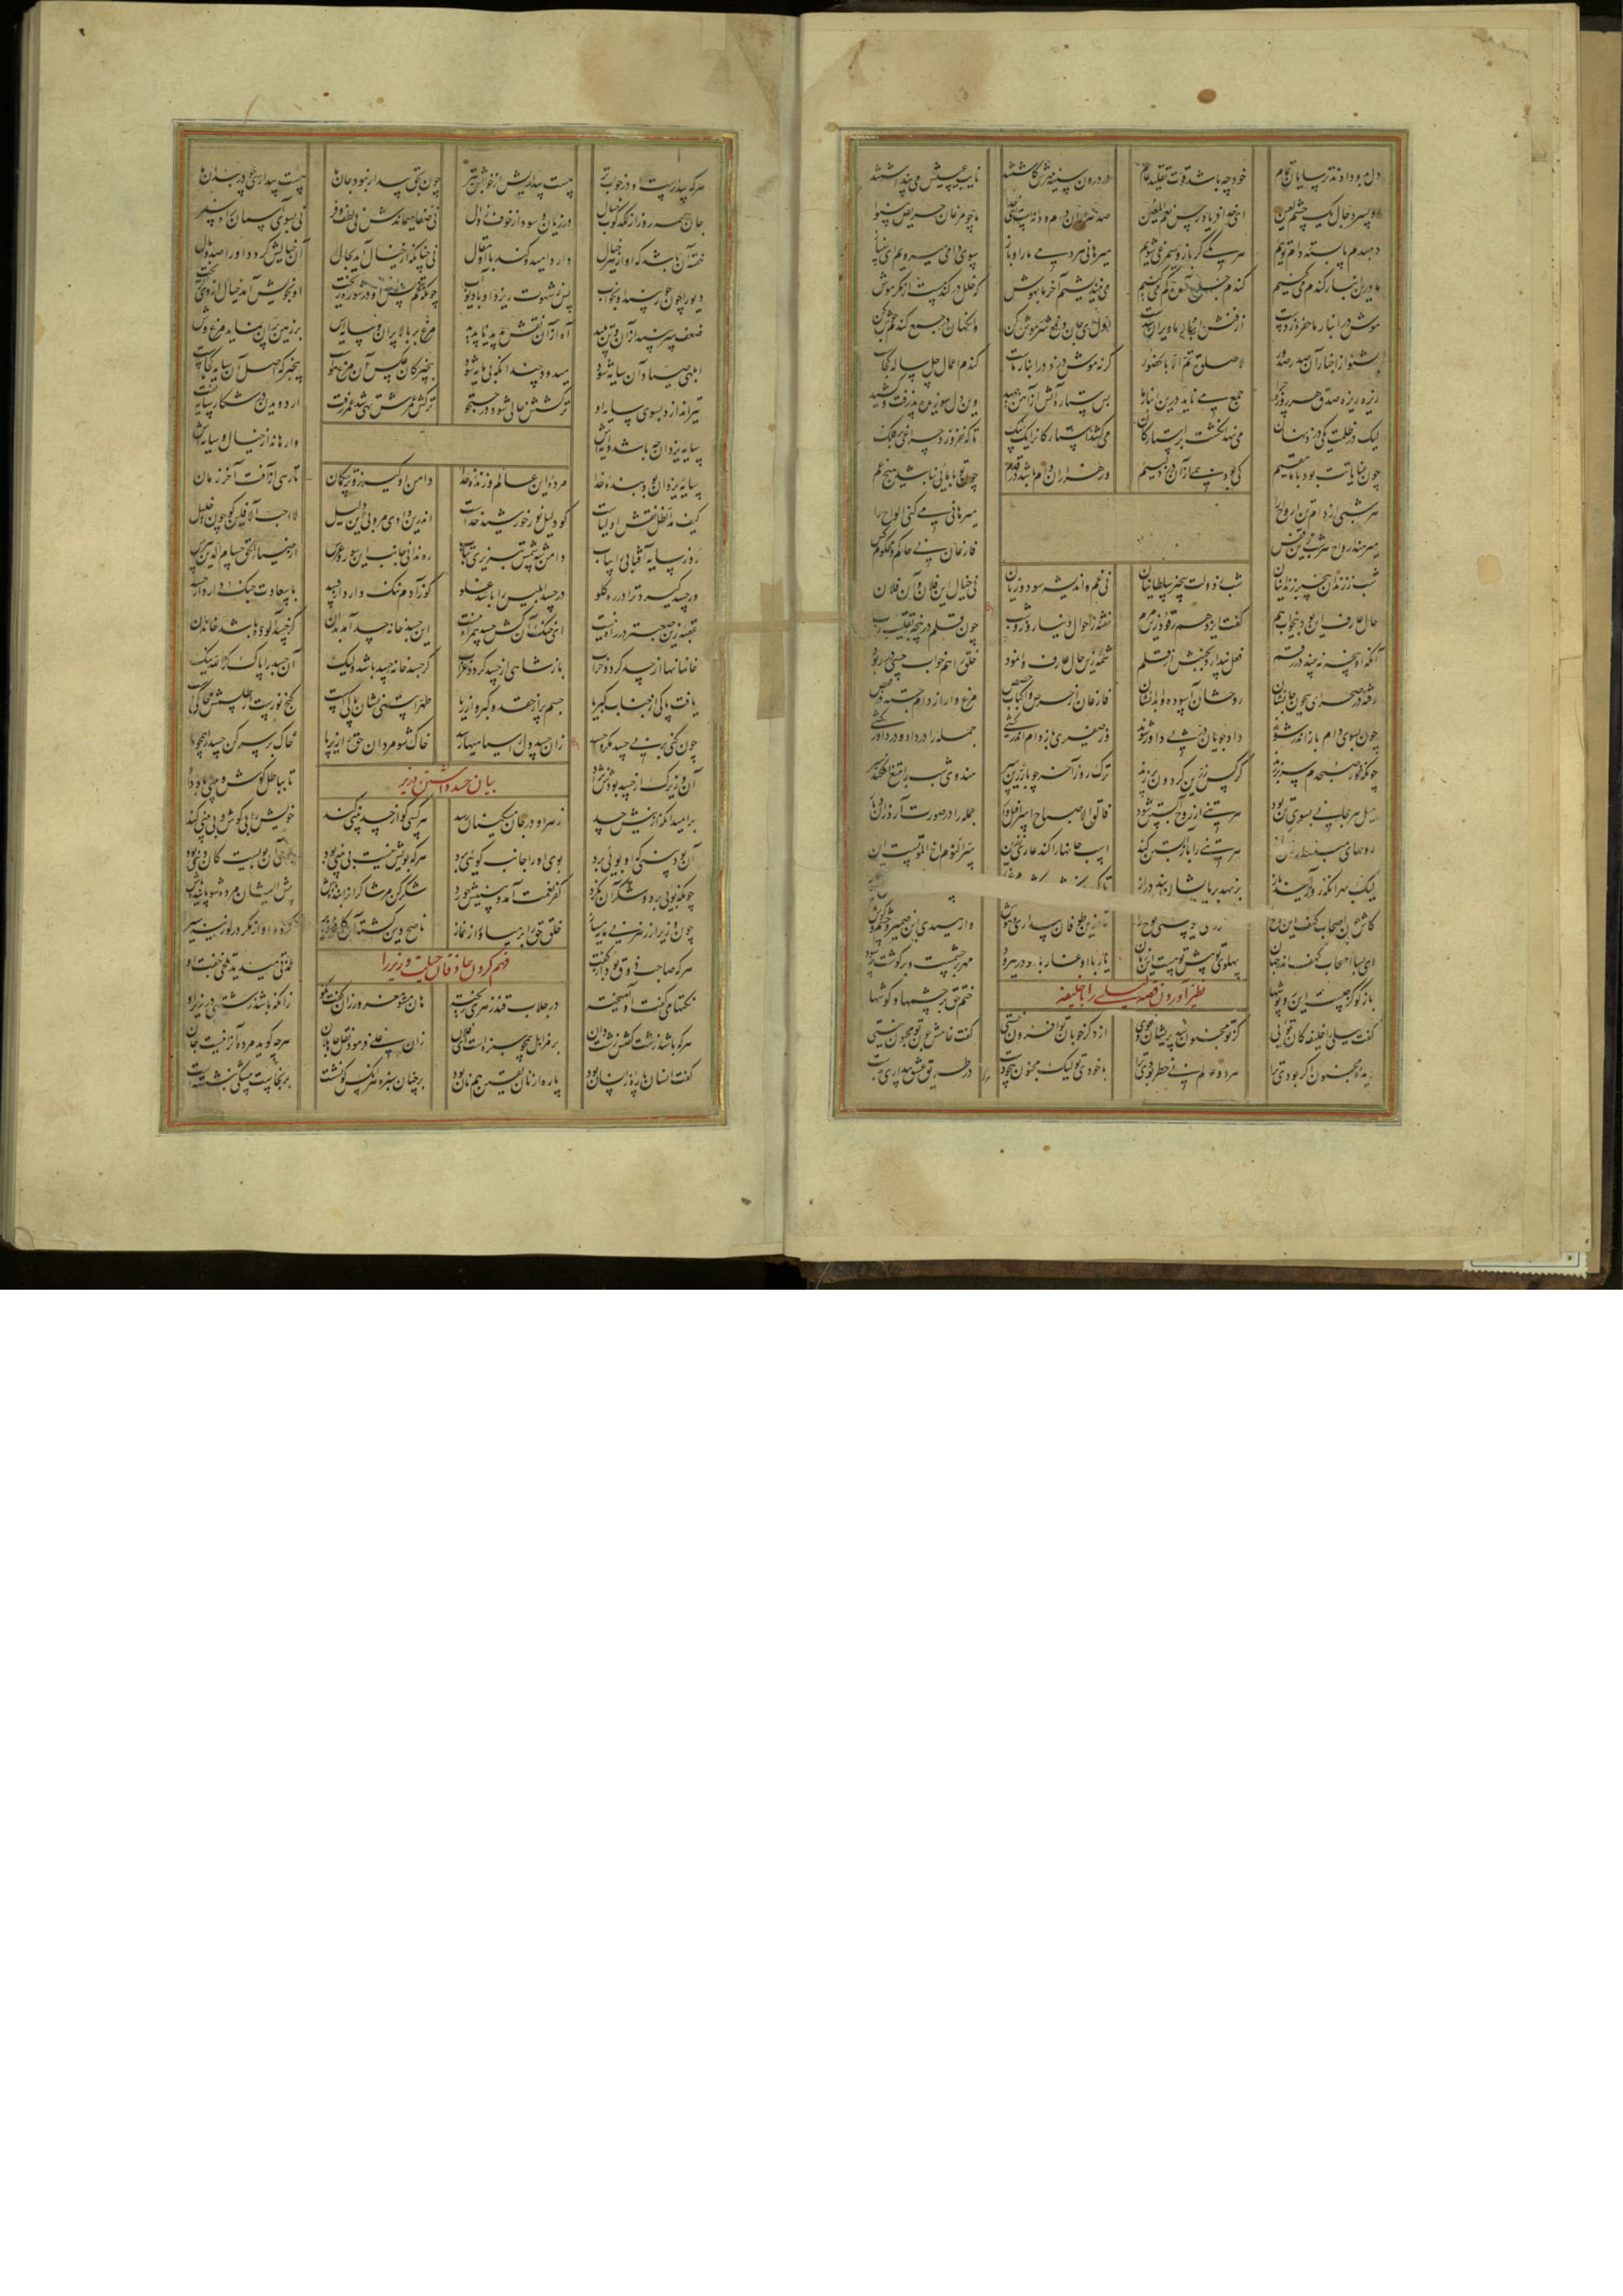 دل بدو دادند ترسایان تمام خود چه باشد قوت تقلید عام در درون سینه مهرش کاشتند نایب عیسیش می پنداشتند
او بسر دجال یک چشم لعین ای خدا فریاد رس نعم المعین صد هزاران دام و دانه است ای خدا ما چو مرغان حریص بی نوا
دمبدم ما بسته دام نویم هر یکی گر باز و سیمرغی شویم میرهانی هر دمی ما را و باز سوی دامی میرویم ای بی نیاز
ما درین انبار گندم می کنیم گندم جمع آمده گم می کنیم می نیندیشیم آخر ما بهوش کین خلل در گندمست از مکر موش
موش در انبار ما حفره زدست از فنش انبار ما ویران شدست اول ای جان دفع شر موش کن وانگهان در جمع گندم جوش کن
بشنو از اخبار آن صدر صدور لا صلوة تم الا بالحضور گر نه موش دزد در انبار ماست گندم اعمال چل ساله کجاست
ریزه ریزه صدق هر روزه چرا جمع می ناید درین انبار ما بس ستاره آتش از آهن جهید وین دل سوزیده پذرفت و کشید
لیک در ظلمت یکی دزدی نهان می نهد انگشت بر استارگان می کشد استارگان را یک بیک تا که نفروزد چراغی بر فلک
چون عنایاتت بود با ما مقیم کی بود بیمی از آن دزد لئیم ور هزاران دام باشد در قدم چون تو با مایی نباشد هیچ غم
هر شبی از دام تن ارواح را میرهانی می کنی الواح را
میرهند ارواح هر شب زین قفس فارغان نی حاکم و محکوم کس
شب ز زندان بیخبر زندانیان شب ز دولت بیخبر سلطانیان نی غم و اندیشه سود و زیان نی خیال این فلان و آن فلان
حال عارف این بود بیخواب هم گفت ایزد هم رقود زین مرم خفته از احوال دنیا روز و شب چون قلم در پنجه تقلیب رب
آنکه او پنجه نبیند در رقم فعل پندارد بجنبش از قلم شمه زین حال عارف وا نمود خلق را هم خواب حسی در ربود
رفته در صحرای بیچون جانشان روحشان آسوده و ابدانشان فارغان از حرص و اکباب و حصص مرغ وار از دام جسته وز قفص
چون بسوی دام باز اندر شوند داد جویان در پی داور شوند وز صفیری باز دام اندر کشی جمله را در داد و در داور کشی
چونکه نور صبحدم سر بر زند کرکس زرین گردون پر زند ترک روز آخر چو با زرین سپر هندوی شب را بتیغ افکنده سر
میل هر جانی بسوی تن بود هر تنی از روح آبستن شود فالق الاصباح اسرافیل وار جمله را در صورت آرد زان دیار
روحهای منبسط را تن کند هر تنی را باز آبستن کند اسب جانها را کند عاری ز زین سر النوم اخ الموتست این
لیک بهر آنکه روز آیند باز بر نهد بر پایشان بند دراز
کاش چون اصحاب کهف این روح تا ازین طوفان بیداری و هوش وا رهیدی این ضمیر و چشم و گوش
ای بسا اصحاب کهف اندر جهان پهلوی تو پیش تو هست این زمان یار با او غار با او در سرود مهر بر چشمست و بر گوشت چه سود
باز گو کز چیست این روپوشها ختم حق بر چشمها و گوشها
نظیر آوردن قصه لیلی را با خلیفه
گفت لیلی را خلیفه کان توئی کز تو مجنون شد پریشان و غوی از دگر خوبان تو افزون نیستی گفت خامش چون تو مجنون نیستی
دیده مجنون اگر بودی ترا هر دو عالم بی خطر بودی ترا با خودی تو لیک مجنون بیخودست در طریق عشق بیداری بدست
هر که بیدارست او در خواب تر هست بیداریش از خوابش بتر چون بحق بیدار نبود جان ما هست بیداری چو در بندان ما
جان همه روز از لگدکوب خیال وز زیان و سود و از خوف زوال نی صفا میماندش نی لطف و فر نی بسوی آسمان راه سفر
خفته آن باشد که او از هر خیال دارد امید و کند با او مقال نی چنانکه از خیال آید بحال آن خیالش گردد او را صد وبال
دیو را چون حور بیند او بخواب پس ز شهوت ریزد او با دیو آب چونکه تخم نسل او در شوره ریخت او بخویش آمد خیال از وی گریخت
ضعف سر بیند از آن و تن پلید آه از آن نقش پدید ناپدید مرغ بر بالا پران و سایه اش بر زمین پران نماید مرغ وش
ابلهی صیاد آن سایه شود میدود چندانکه بی مایه شود بیخبر کان عکس آن مرغ هواست بیخبر که اصل آن سایه کجاست
تیر اندازد بسوی سایه او ترکشش خالی شود در جستجو ترکش عمرش تهی شد عمر رفت از دویدن در شکار سایه تفت
سایه یزدان چو باشد دایه اش وا رهاند از خیال و سایه اش
سایه یزدان بود بنده خدا مرده این عالم و زنده خدا دامن او گیر زوتر بیگمان تا رهی از آفت آخر زمان
کیف مد الظل نقش اولیاست کو دلیل نور خورشید خداست اندرین وادی مرو بی این دلیل لا احب الآفلین گو چون خلیل
رو ز سایه آفتابی را بیاب دامن شه شمس تبریزی بتاب ره ندانی جانب این سور و عرس از ضیاء الحق حسام الدین بپرس
ور حسد گیرد ترا در ره گلو در حسد ابلیس را باشد غلو کو ز آدم ننگ دارد از حسد با سعادت جنگ دارد از حسد
عقبه زین صعبتر در راه نیست ای خنک آن کش حسد همراه نیست این جسد خانه حسد آمد بدان کز حسد آلوده باشد خاندان
خانمانها از حسد گردد خراب باز شاهی از حسد گردد غراب گر جسد خانه حسد باشد ولیک آن جسد را پاک کرد الله نیک
یافت پاکی از جناب کبریا جسم پر از حقد و کبر و از ریا طهرا بیتی نشان پاکیست گنج نورست ار طلسمش خاکیست
چون کنی بر بی حسد مکر و حسد زان حسد دل را سیاهیها رسد خاک شو مردان حق را زیر پا خاک بر سر کن حسد را همچو ما
بیان حسد داشتن وزیر
آن وزیرک از حسد بودش نژاد تا بباطل گوش و بینی باد داد
بر امید آنکه از نیش حسد زهر او در جان مسکینان رسد هر کسی کو از حسد بینی کند خویش را بی گوش و بی بینی کند
آن بود بینی که او بویی برد بوی او را جانب کوئی برد هر که بویش نیست بی بینی بود بوی آن بویست کان دینی بود
چونکه بویی برد و شکر آن نکرد کفر نعمت آمد و بینیش خورد شکر کن مر شاکران را بنده باش پیش ایشان مرده شو پاینده باش
چون وزیر از رهزنی مایه مساز خلق را تو بر میاور از نماز ناصح دین گشته آن کافر وزیر کرده او از مکر در لوزینه سیر
هر که صاحب ذوق بود از گفت او لذتی میدید و تلخی جفت او
فهم کردن حاذقان حیلت وزیر را
نکتها میگفت او آمیخته در جلاب قند زهری ریخته هان مشو مغرور زان گفت نکو زانکه باشد زشتی در زیر او
هر که باشد زشت گفتش زشت دان هر چه گوید مرده آنرا نیست جان
گفت انسان پاره ز انسان بود پاره از نان یقین هم نان بود زان علی فرمود نقل جاهلان بر مزابل همچو سبزه است ای فلان
بر چنان سبزه هر آنکو بر نشست بر نجاست بیشکی بنشسته است